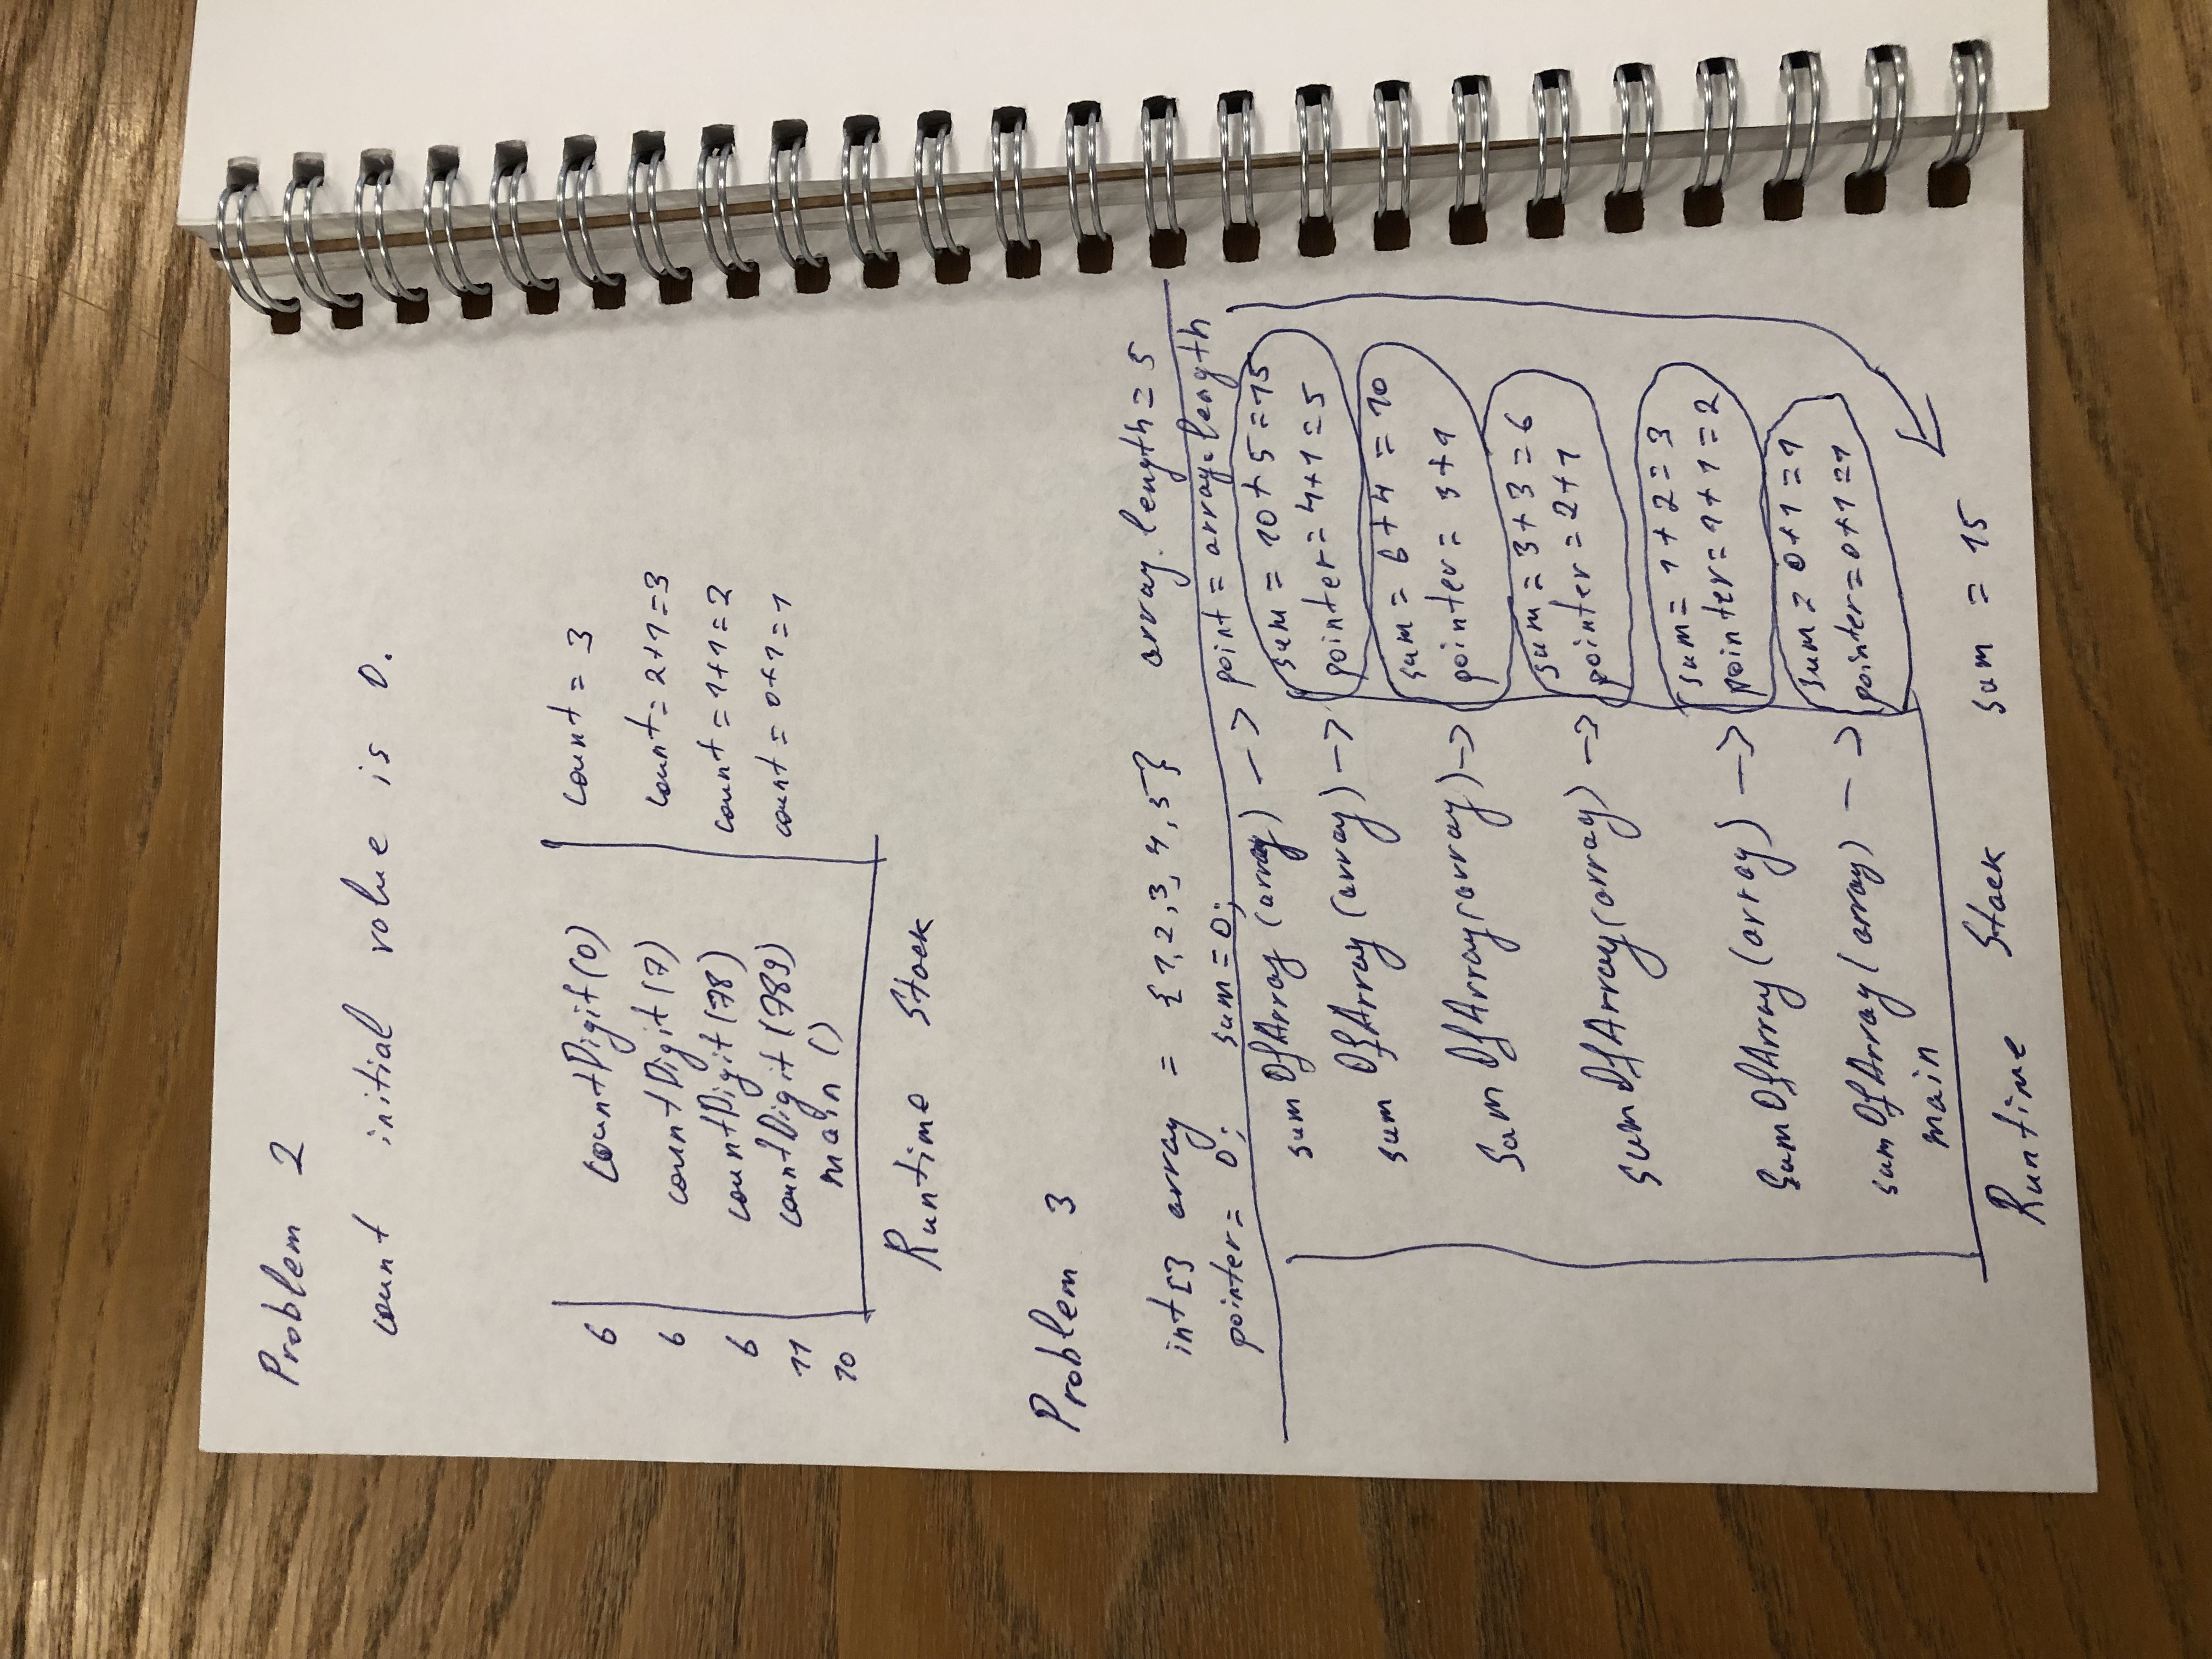 Problem 2
count initial value is 0.
6 countDigit(0) count = 3
6 countDigit(7) count = 2+1=3
6 countDigit(78) count = 1+1=2
11 countDigit(789) count = 0+1=1
10 main ()
Runtime Stack
Problem 3
int[] array = {1,2,3,4,5} array.length = 5
pointer = 0; sum = 0;
sumOfArray (array) -> point = array.length
sumOfArray (array) -> sum = 10+5=15
pointer = 4+1=5
sumOfArray(array) -> sum = 6+4=10
pointer = 3+1
sumOfArray(array) -> sum = 3+3=6
pointer = 2+1
sumOfArray(array) -> sum = 1+2=3
pointer = 1+1=2
sumOfArray(array) -> sum = 0+1=1
pointer = 0+1=1
main
Runtime Stack sum = 15